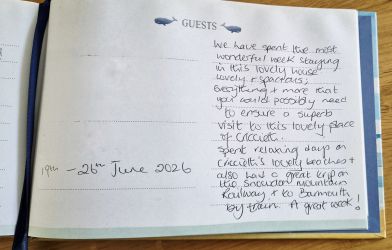 GUESTS
We have spent the most
wonderful week staying
in this lovely house
lovely + spacious,
Everything + more that
you could possibly need
to ensure a superb
visit to this lovely place
of Criccieth.
Spent relaxing days on
Criccieth's lovely beaches +
also had a great trip on
the Snowdon Mountain
Railway + to Barmouth
by train. A great week!
19th - 26th June 2026